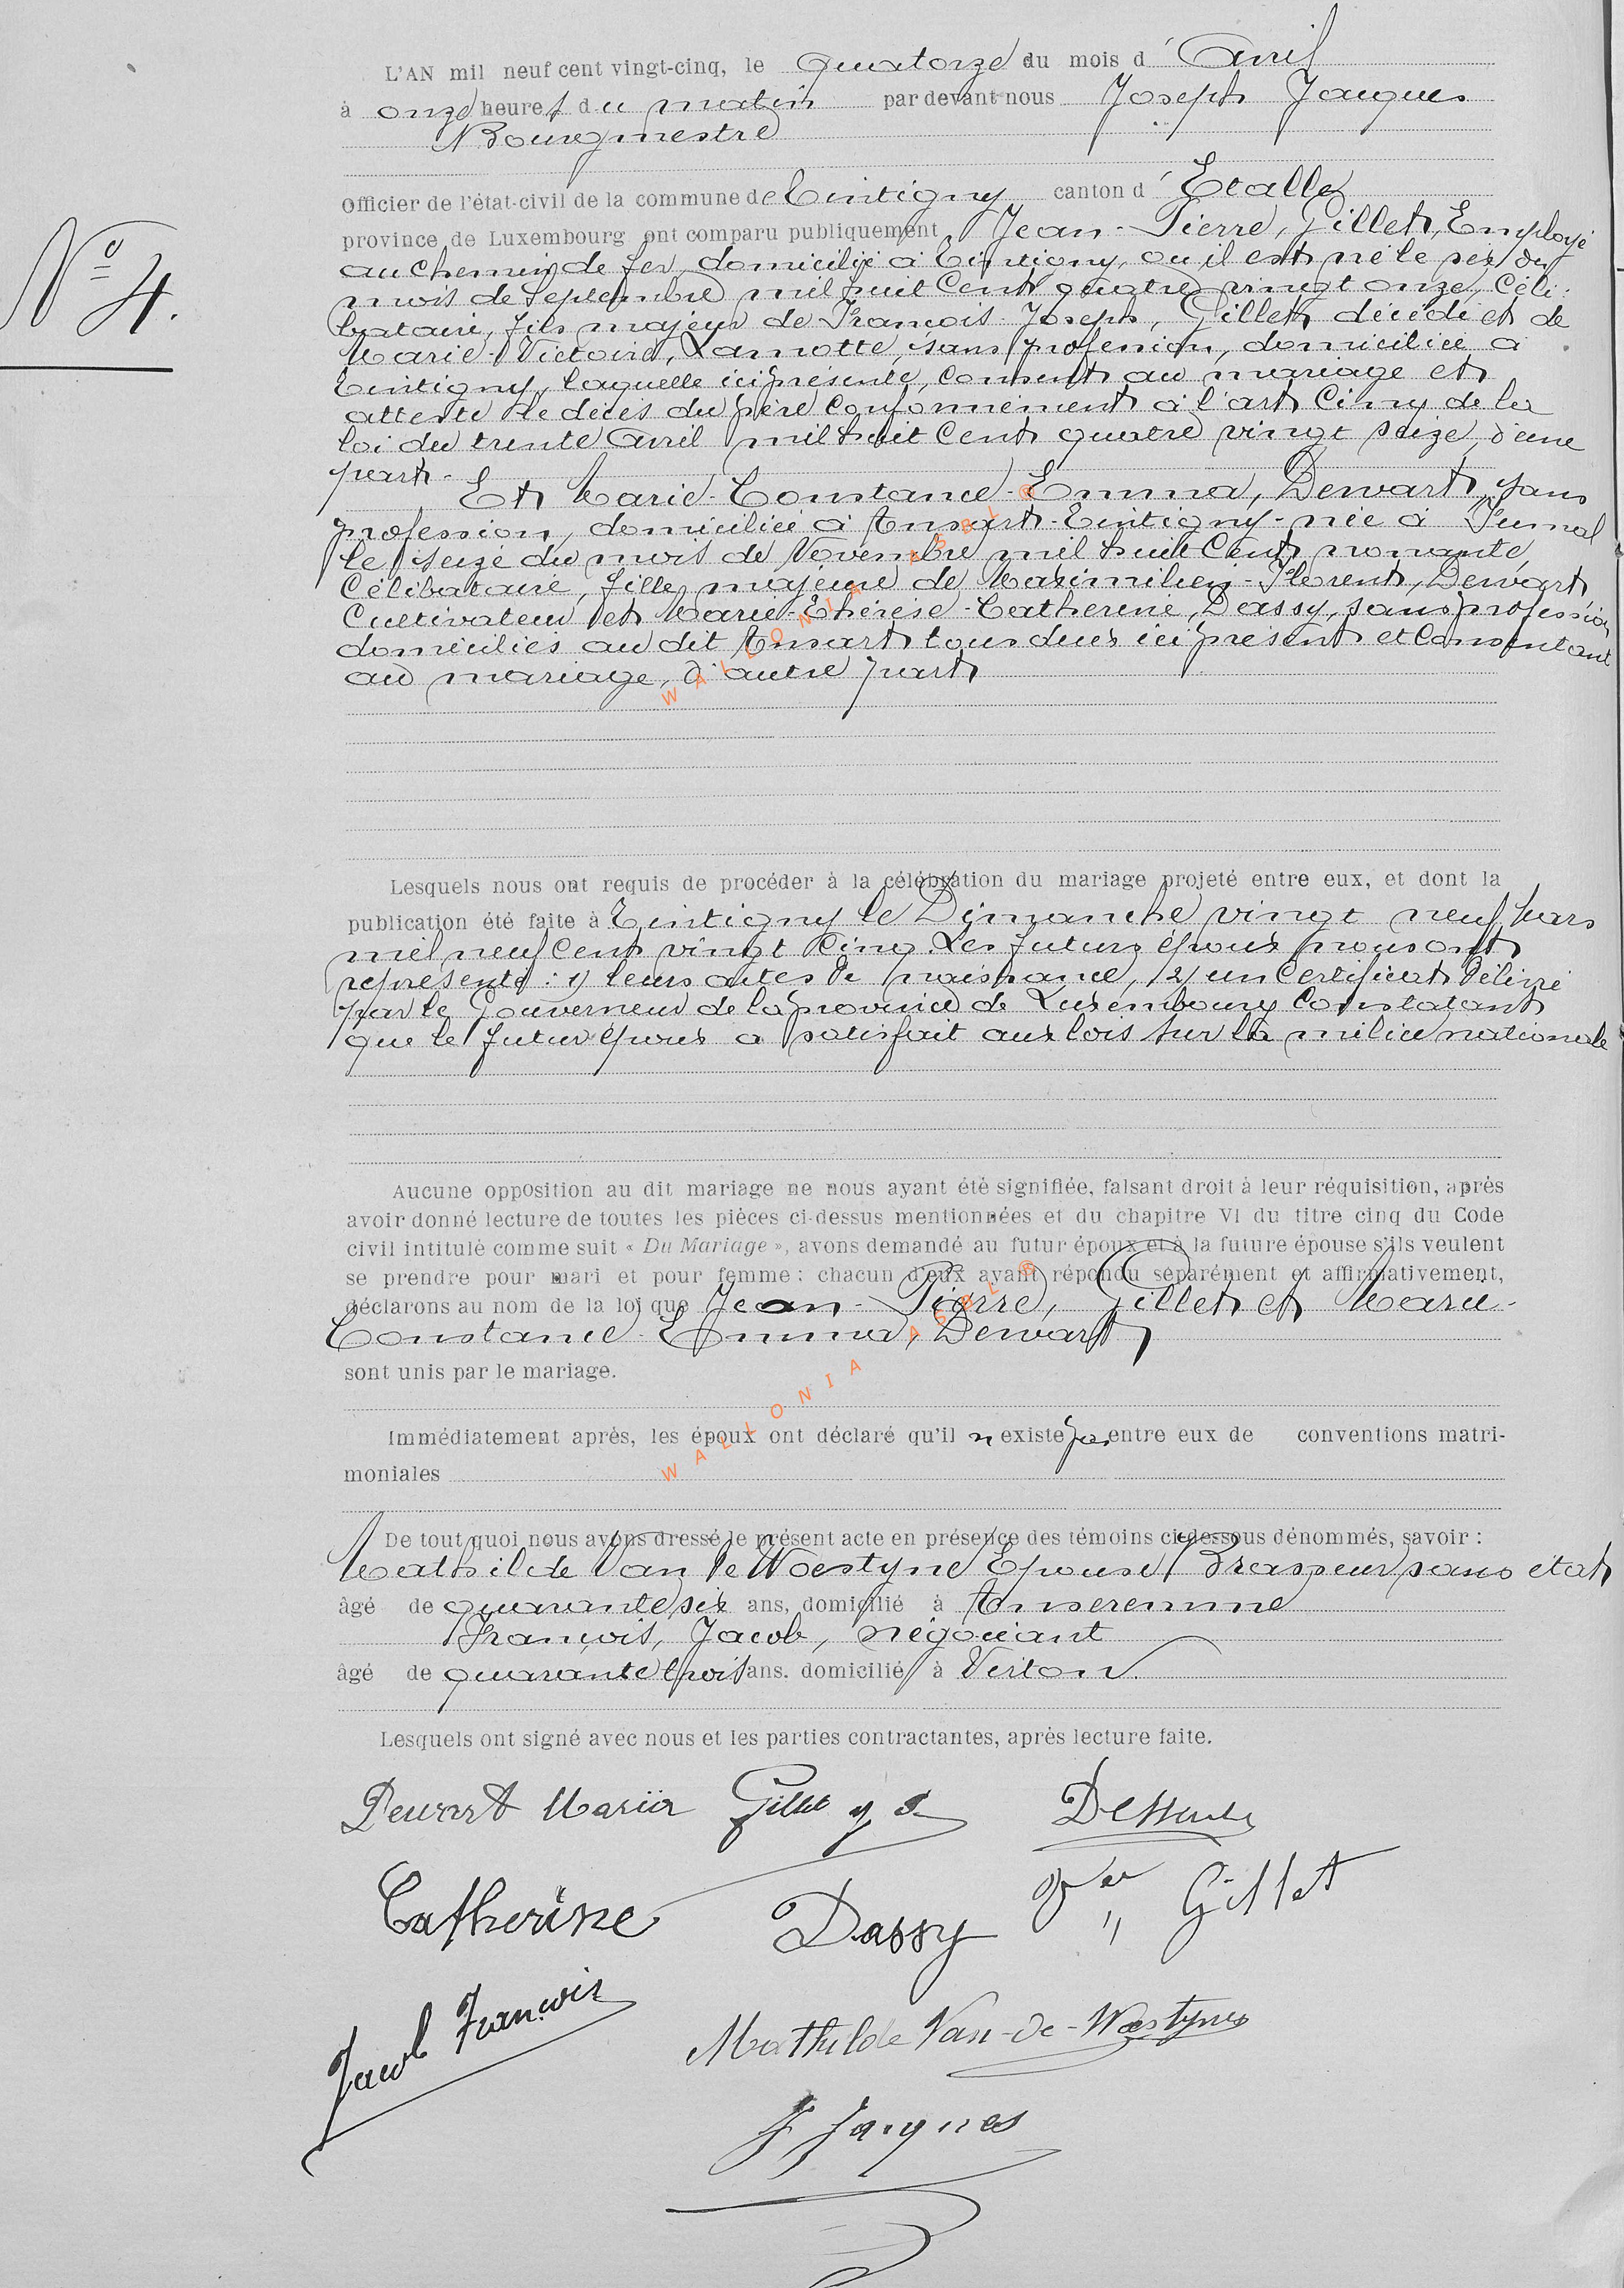 L'AN mil neuf cent vingt-cinq, le quatorze du mois d' Avril
à onze heures du matin par devant nous Joseph Jacques
Bourgmestre
Officier de l'état-civil de la commune de Tintigny canton d' Etalle
province de Luxembourg ont comparu publiquement Jean-Pierre, Gillet, Employé
N° 4.
au chemin de fer, domicilié à Tintigny, où il est né le six du
mois de Septembre mil huit Cent quatre vingt onze, Céli-
bataire, fils majeur de François-Joseph, Gillet, décédé et de
Marie-Victoire, Lamotte, sans profession, domiciliée à
Tintigny, laquelle ici présente, consent au mariage et
atteste le décès du père conformément à l'art Cinq de la
loi du trente Avril mil huit Cent quatre vingt seize, d'une
part.
Et Marie-Constance-Emma, Dewart, sans
profession, domiciliée à Ansart-Tintigny-née à Fumal
le seize du mois de Novembre mil huit Cent nonante,
Célibataire, fille majeure de Maximilien-Florent, Dewart
Cultivateur et Marie-Thérèse-Catherine, Dassy, sans profession
domiciliés au dit Ansart tous deux ici présent et Consentant
au mariage, d'autre part
WALLONIA ASBL ®
Lesquels nous ont requis de procéder à la célébration du mariage projeté entre eux, et dont la
publication été faite à Tintigny le Dimanche vingt neuf Mars
mil neuf cent vingt Cinq. Les futurs époux nous ont
représenté : 1) leurs actes de naissance, 2) un Certificat délivré
par le Gouverneur de la province de Luxembourg Constatant
que le futur époux a satisfait aux lois sur la milice nationale
Aucune opposition au dit mariage ne nous ayant été signifiée, faisant droit à leur réquisition, après
avoir donné lecture de toutes les pièces ci-dessus mentionnées et du chapitre VI du titre cinq du Code
civil intitulé comme suit « Du Mariage », avons demandé au futur époux et à la future épouse s'ils veulent
se prendre pour mari et pour femme : chacun d'eux ayant répondu séparément et affirmativement,
déclarons au nom de la loi que Jean-Pierre, Gillet et Marie-
Constance-Emma, Dewart
sont unis par le mariage.
WALLONIA ASBL ®
Immédiatement après, les époux ont déclaré qu'il n'existe pas entre eux de conventions matri-
moniales
De tout quoi nous avons dressé le présent acte en présence des témoins ci-dessous dénommés, savoir :
Mathilde Van de Woestyne Epouse Brasseur sans état
âgé de quarante six ans, domicilié à Anseremme
François, Jacob, négociant
âgé de quarante trois ans. domicilié à Virton
Lesquels ont signé avec nous et les parties contractantes, après lecture faite.
Dewart Maria Gillet
Catherine Dassy Gillet
Jacob François
Mathilde Van-de-Woestyne
J Jacques